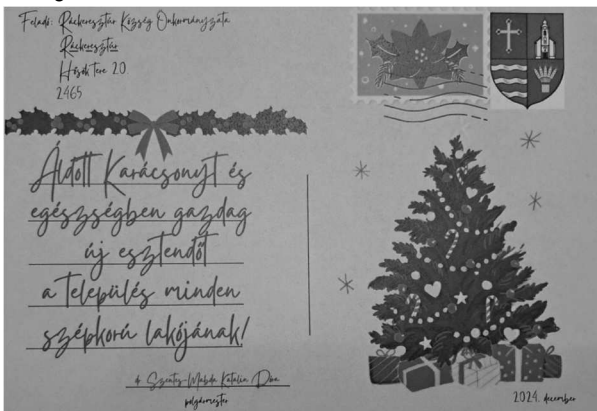 Feladó: Ráckeresztúr Község Önkormányzata
Ráckeresztúr
Hősök tere 20.
2465
Áldott Karácsonyt és
egészségben gazdag
új esztendőt
a település minden
szépkorú lakójának!
Katalin
polgármester
2024. december